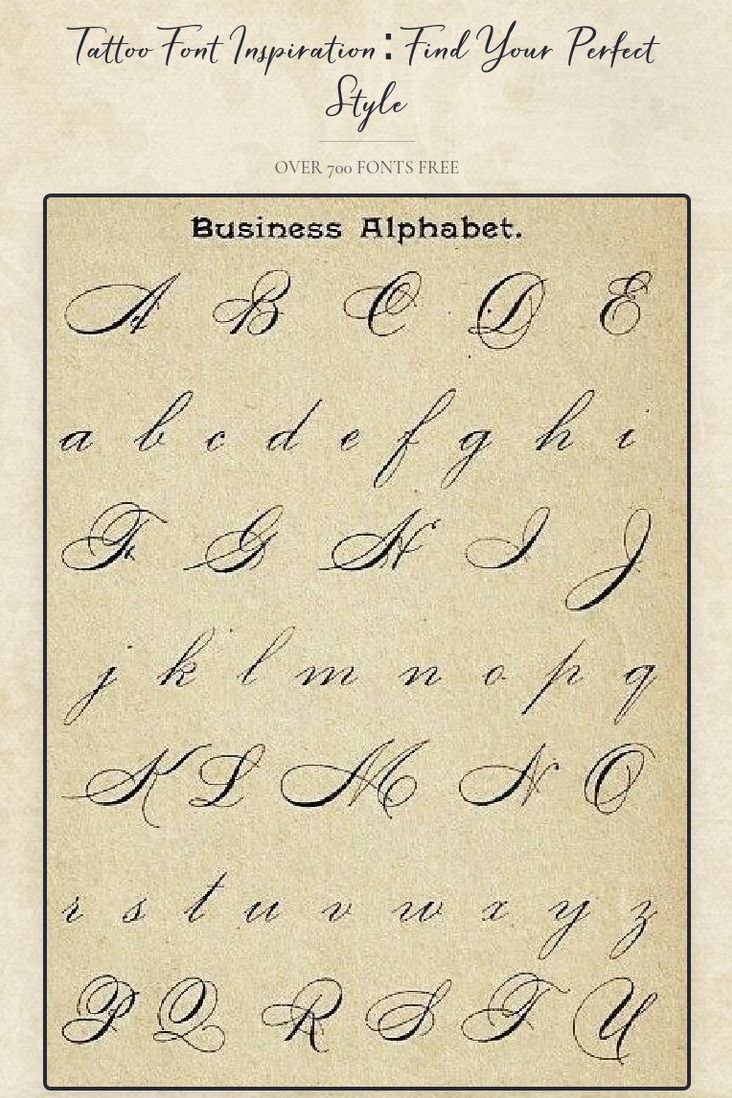 Tattoo Font Inspiration: Find Your Perfect
Style
OVER 700 FONTS FREE
Business Alphabet.
A B C D E
a b c d e f g h i
F G H I J
j k l m n o p q
K L M N O
r s t u v w x y z
P Q R S T U